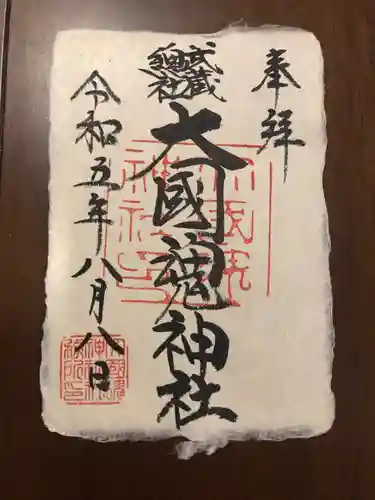 奉拝
武蔵
総社
大國魂神社
令和五年八月八日